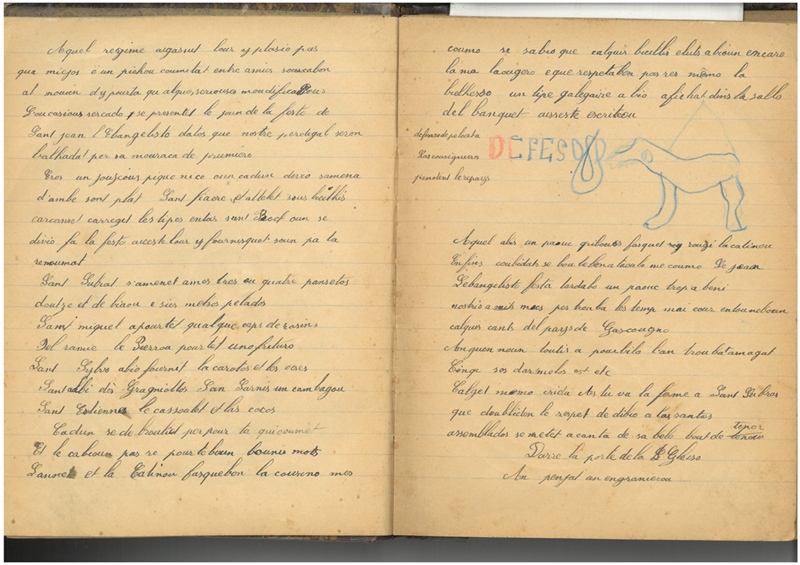 Aquel regime aigassut lour y plasio pas
que mièjos e un pichou coumitat entre amics
al mouïn d'y pourta qualquos seriousos moudificatious
Loucasiu sercado y se presentet le joun de la festo de
Sant jean l'Ebangelisto datos que nostre peroutgal seron
per sa de prumièro
Eros un pique nico oun cadun dereo samena
d'ambe soun plat Sant fiacre et attelet sous bièlhis
carcanet carreget les tipes entas sant Roch oun se
divio fa la festo aceste lour y fournisquet soun pa la
renoumat
Sant Subrat s'amenet ames tres ou quatre panietos
doutzo et de biaou e sies melros pelados
Sant miguel apourtet qualque ceps de rasins
Del ramie le Pierrou pourtet uno frituro
Sant Sylbre abio fournit la carotos et les cezes
Sant des Gragnottos San Sarnis un cambagou
Sant Estienne le cassoulet et las cocos
Cadun se de per pour ta qui coumet
Et le cabiou pas re pourteboun bounis mots
Janoutet et la Catinou fasquebon la cousino mes
coumo se sabio que calquis bièlhis eluts abioun encaro
la ma laougero e que respetaben pas res mêmo la
bielhesso un tipe galegaire a bio afichat dins la sallo
del banquet aceste escriteou
defenso de pel cata
las cousignieros
pendent le repays
DEFESO
Aquel abis un paouc gribous fasquet rougi la catinou
Enfins coubidats se bouteben a taoulo me coumo Se jean
Lebangeliste festa tardabo un paouc trop a beni
nostris amits mes per trouba les temp mai cour entouneboun
calquis cants del pays de Gascougno
Anguen noun toutis a pourtela l'an troubat amagat
Cinqu sos dar molos et etc
Calget mêmo crida As tu va la ferme a Sant Subros
que doublieben le respet de dibio a las santos
assemblados se metet a canta de sa belo bouts de tenor
Darrè la porto de la Glèiso
An penjat un engranièrou